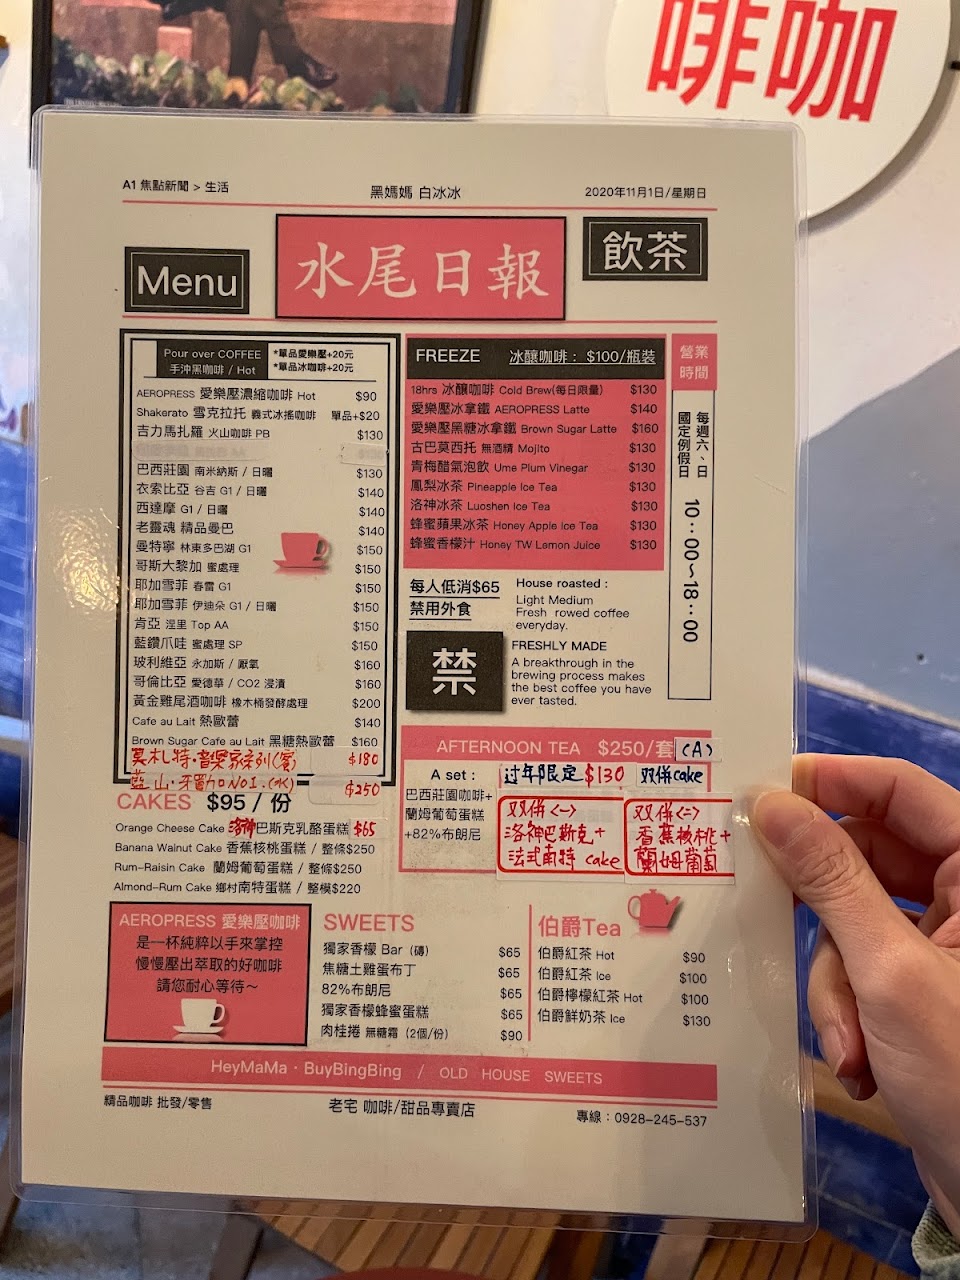 啡咖
A1 焦點新聞 > 生活
黑媽媽 白冰冰
2020年11月1日/星期日
Menu
水尾日報
飲茶
Pour over COFFEE
手沖黑咖啡 / Hot
*單品愛樂壓+20元
*單品冰咖啡+20元
AEROPRESS 愛樂壓濃縮咖啡 Hot $90
Shakerato 雪克拉托 義式冰搖咖啡 單品+$20
吉力馬扎羅 火山咖啡 PB $130
巴西莊園 南米納斯 / 日曬 $130
衣索比亞 谷吉 G1 / 日曬 $140
西達摩 G1 / 日曬 $140
老靈魂 精品曼巴 $140
曼特寧 林東多巴湖 G1 $150
哥斯大黎加 蜜處理 $150
耶加雪菲 春雷 G1 $150
耶加雪菲 伊迪朵 G1 / 日曬 $150
肯亞 涅里 Top AA $150
藍鑽爪哇 蜜處理 SP $150
玻利維亞 永加斯 / 厭氧 $160
哥倫比亞 愛德華 / CO2 浸漬 $160
黃金雞尾酒咖啡 橡木桶發酵處理 $200
Cafe au Lait 熱歐蕾 $140
Brown Sugar Cafe au Lait 黑糖熱歐蕾 $160
莫札特·音樂家系列(蜜) $180
藍山·牙買加NO1.(水) $250
FREEZE 冰釀咖啡： $100/瓶裝
18hrs 冰釀咖啡 Cold Brew(每日限量) $130
愛樂壓冰拿鐵 AEROPRESS Latte $140
愛樂壓黑糖冰拿鐵 Brown Sugar Latte $160
古巴莫西托 無酒精 Mojito $130
青梅醋氣泡飲 Ume Plum Vinegar $130
鳳梨冰茶 Pineapple Ice Tea $130
洛神冰茶 Luoshen Ice Tea $130
蜂蜜蘋果冰茶 Honey Apple Ice Tea $130
蜂蜜香檬汁 Honey TW Lemon Juice $130
營業
時間
每週六、日
國定例假日
10：00~18：00
每人低消$65
禁用外食
禁
House roasted :
Light Medium
Fresh rowed coffee
everyday.
FRESHLY MADE
A breakthrough in the
brewing process makes
the best coffee you have
ever tasted.
AFTERNOON TEA $250/套 (A)
A set :
巴西莊園咖啡+
蘭姆葡萄蛋糕
+82%布朗尼
过年限定 $130 双併cake
双併<一>
洛神巴斯克+
法式南特 cake
双併<二>
香蕉核桃+
蘭姆葡萄
CAKES $95 / 份
Orange Cheese Cake 洛神巴斯克乳酪蛋糕 $65
Banana Walnut Cake 香蕉核桃蛋糕 / 整條$250
Rum-Raisin Cake 蘭姆葡萄蛋糕 / 整條$250
Almond-Rum Cake 鄉村南特蛋糕 / 整模$220
AEROPRESS 愛樂壓咖啡
是一杯純粹以手來掌控
慢慢壓出萃取的好咖啡
請您耐心等待～
SWEETS
獨家香檬 Bar (磚) $65
焦糖土雞蛋布丁 $65
82%布朗尼 $65
獨家香檬蜂蜜蛋糕 $65
肉桂捲 無糖霜 (2個/份) $90
伯爵Tea
伯爵紅茶 Hot $90
伯爵紅茶 Ice $100
伯爵檸檬紅茶 Hot $100
伯爵鮮奶茶 Ice $130
HeyMaMa · BuyBingBing / OLD HOUSE SWEETS
精品咖啡 批發/零售
老宅 咖啡/甜品專賣店
專線：0928-245-537